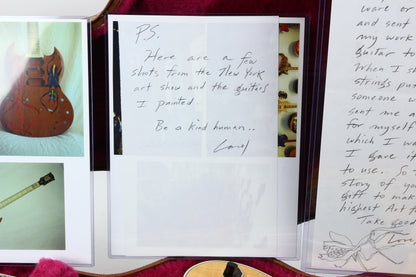 PS.
Here are a few
shots from the New York
art show and the guitars
I painted.
Be a kind human..
ware or
and sent
my work
guitar to
When I
strings put
someone
sent me a
for myself
which I wa
I gave it
to use. So
story of you
gift to make
highest Art
Take good